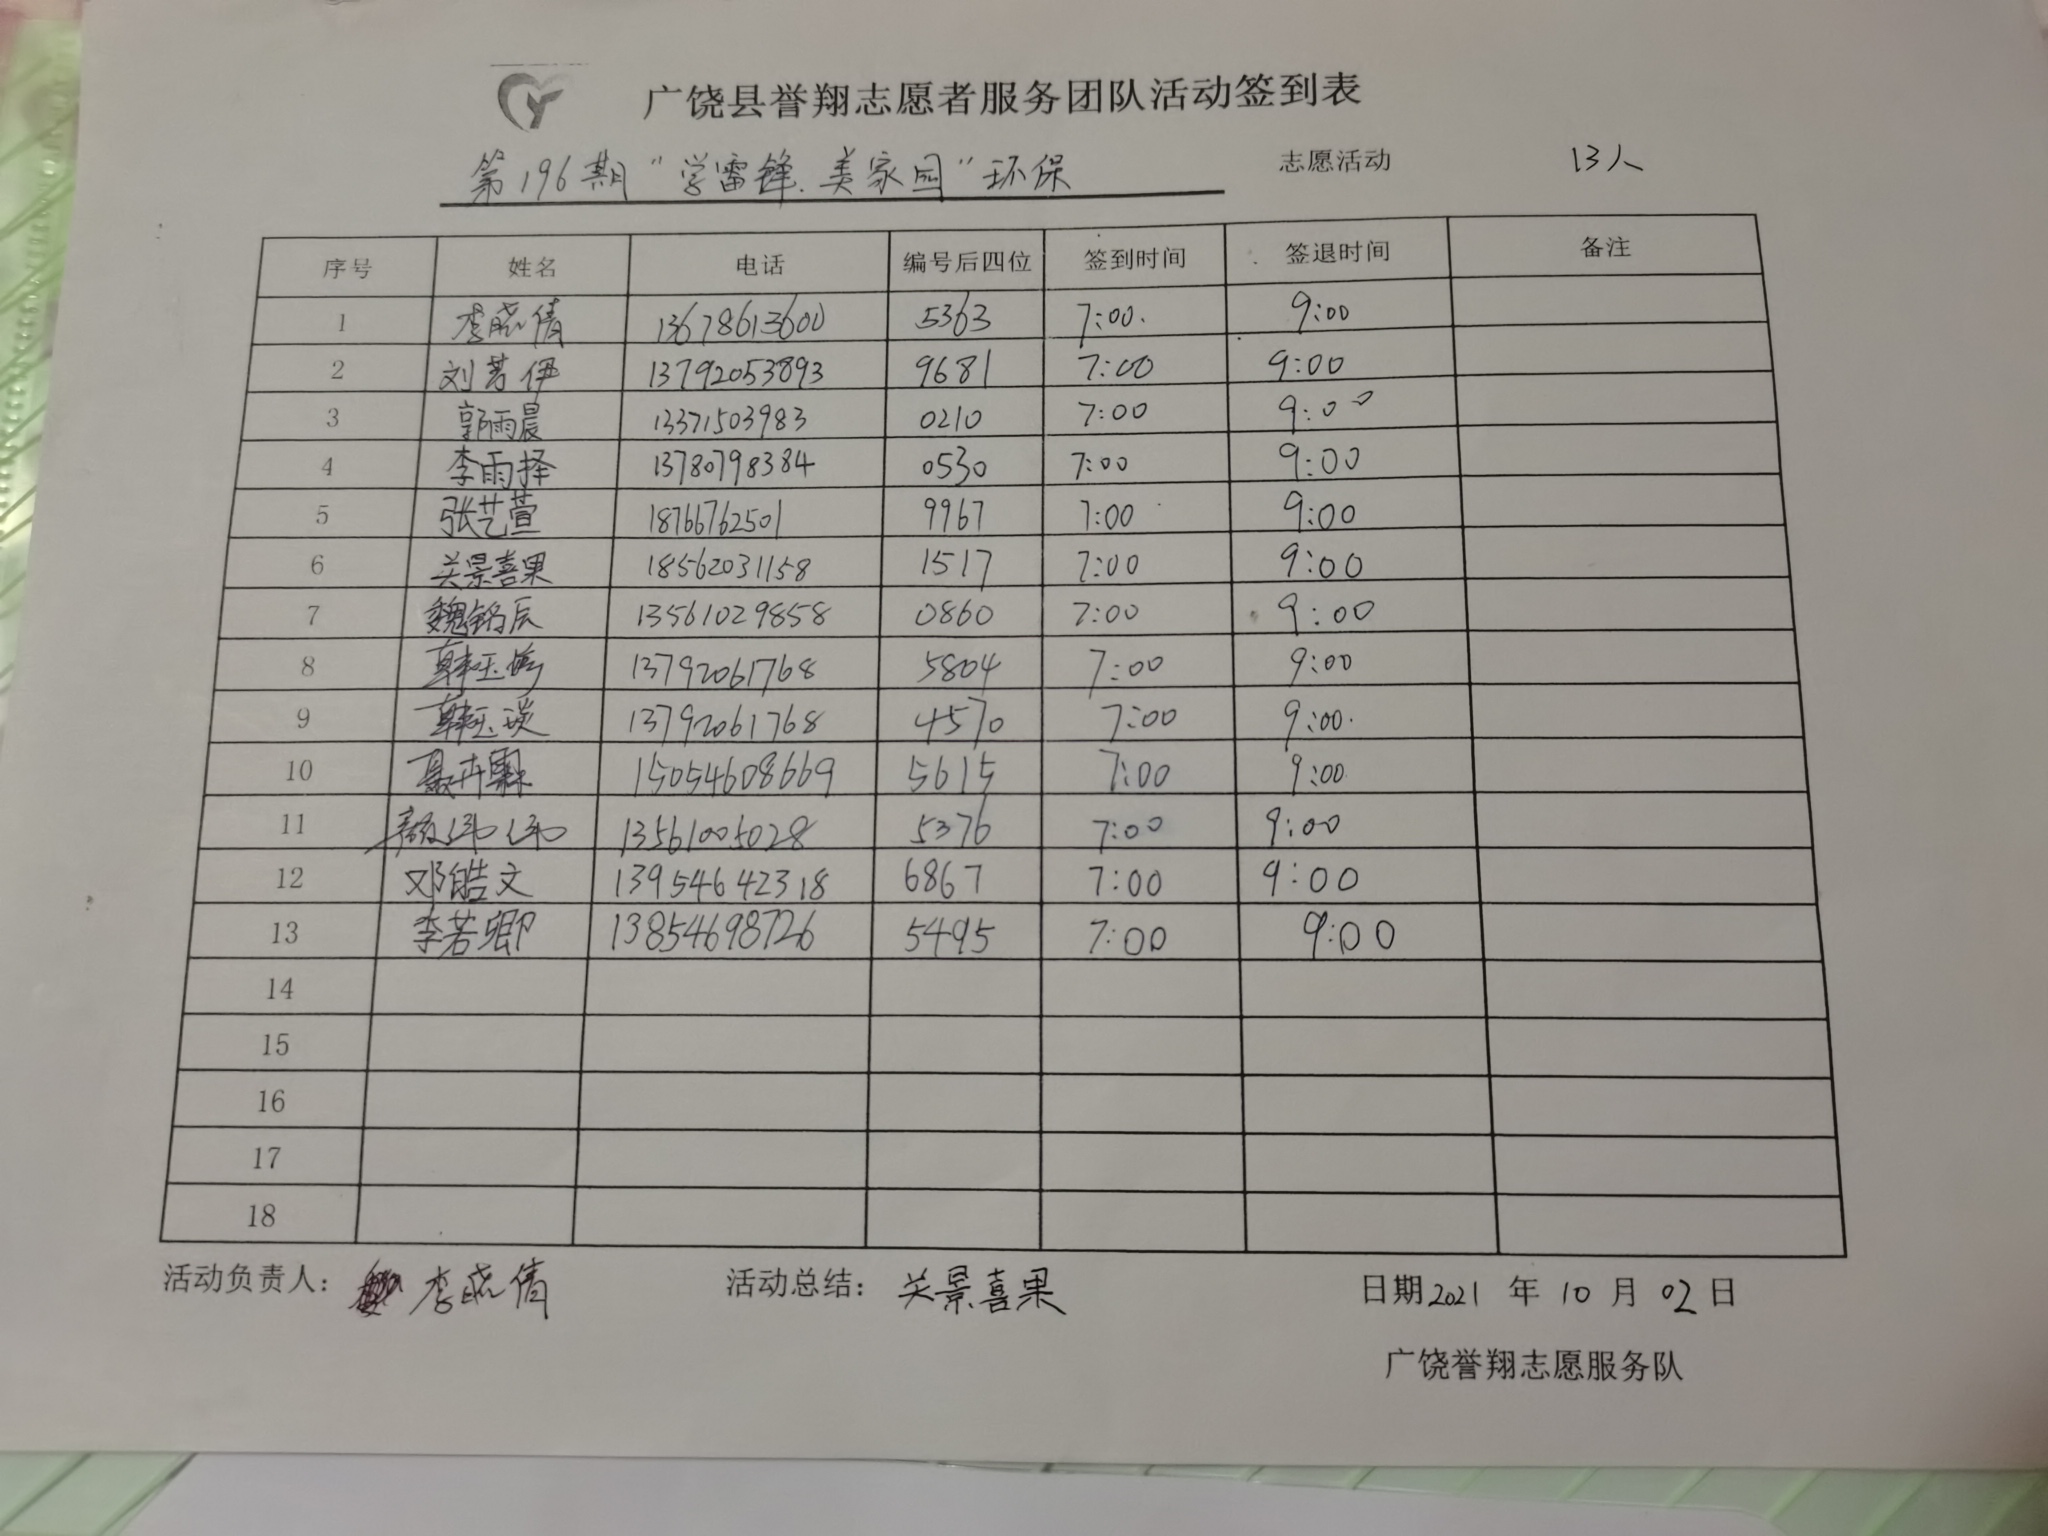 广饶县誉翔志愿者服务团队活动签到表
第196期“学雷锋.美家园”环保 志愿活动 13人
序号 姓名 电话 编号后四位 签到时间 签退时间 备注
1 李晓倩 13678613600 5363 7:00. 9:00
2 刘若伊 13792053893 9681 7:00 9:00
3 郭雨晨 13371503983 0210 7:00 9:00
4 李雨择 13780798384 0530 7:00 9:00
5 张艺萱 18766762501 9967 7:00 9:00
6 关景喜果 18562031158 1517 7:00 9:00
7 魏铭辰 13561029858 0860 7:00 9:00
8 韩玉 13792061768 5804 7:00 9:00
9 韩玉琰 13792061768 4570 7:00 9:00.
10 聂卉 15054608669 5615 7:00 9:00
11 13561005028 5376 7:00 9:00
12 邓皓文 13954642318 6867 7:00 9:00
13 李若卿 13854698726 5495 7:00 9:00
14
15
16
17
18
活动负责人： 李晓倩 活动总结： 关景喜果 日期2021 年 10 月 02 日
广饶誉翔志愿服务队